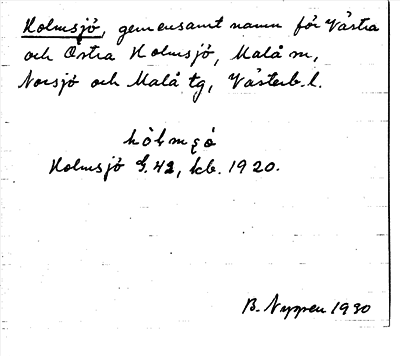 Holmsjö, gemensamt namn för Västra
och Östra Holmsjö, Malå sn,
Norsjö och Malå tg, Västerb. l.
hòlmʂö̀
Holmsjö G. 42, kb. 1920.
B. Nyppen 1930